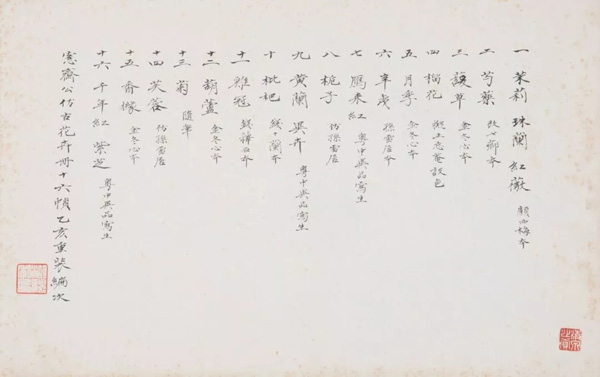 一 茉莉 珠蘭 紅薇 顧西梅本
二 芍藥 改七薌本
三 諼草 金冬心本
四 榴花 撫王忘庵設色
五 月季 金冬心本
六 羊 孫雪居本
七 雁來紅 粵中異品寫生
八 梔子 仿孫雪居
九 黃蘭 異卉 粵中異品寫生
十 枇杷 錢 蘭本
十一 雞冠 錢蘀石本
十二 葫蘆 金冬心本
十三 菊 隨筆
十四 芙蓉 仿孫雪居
十五 香櫞 金冬心本
十六 千年紅 紫芝 粵中異品寫生
愙齋公仿古花卉冊十六幀乙亥重裝編次